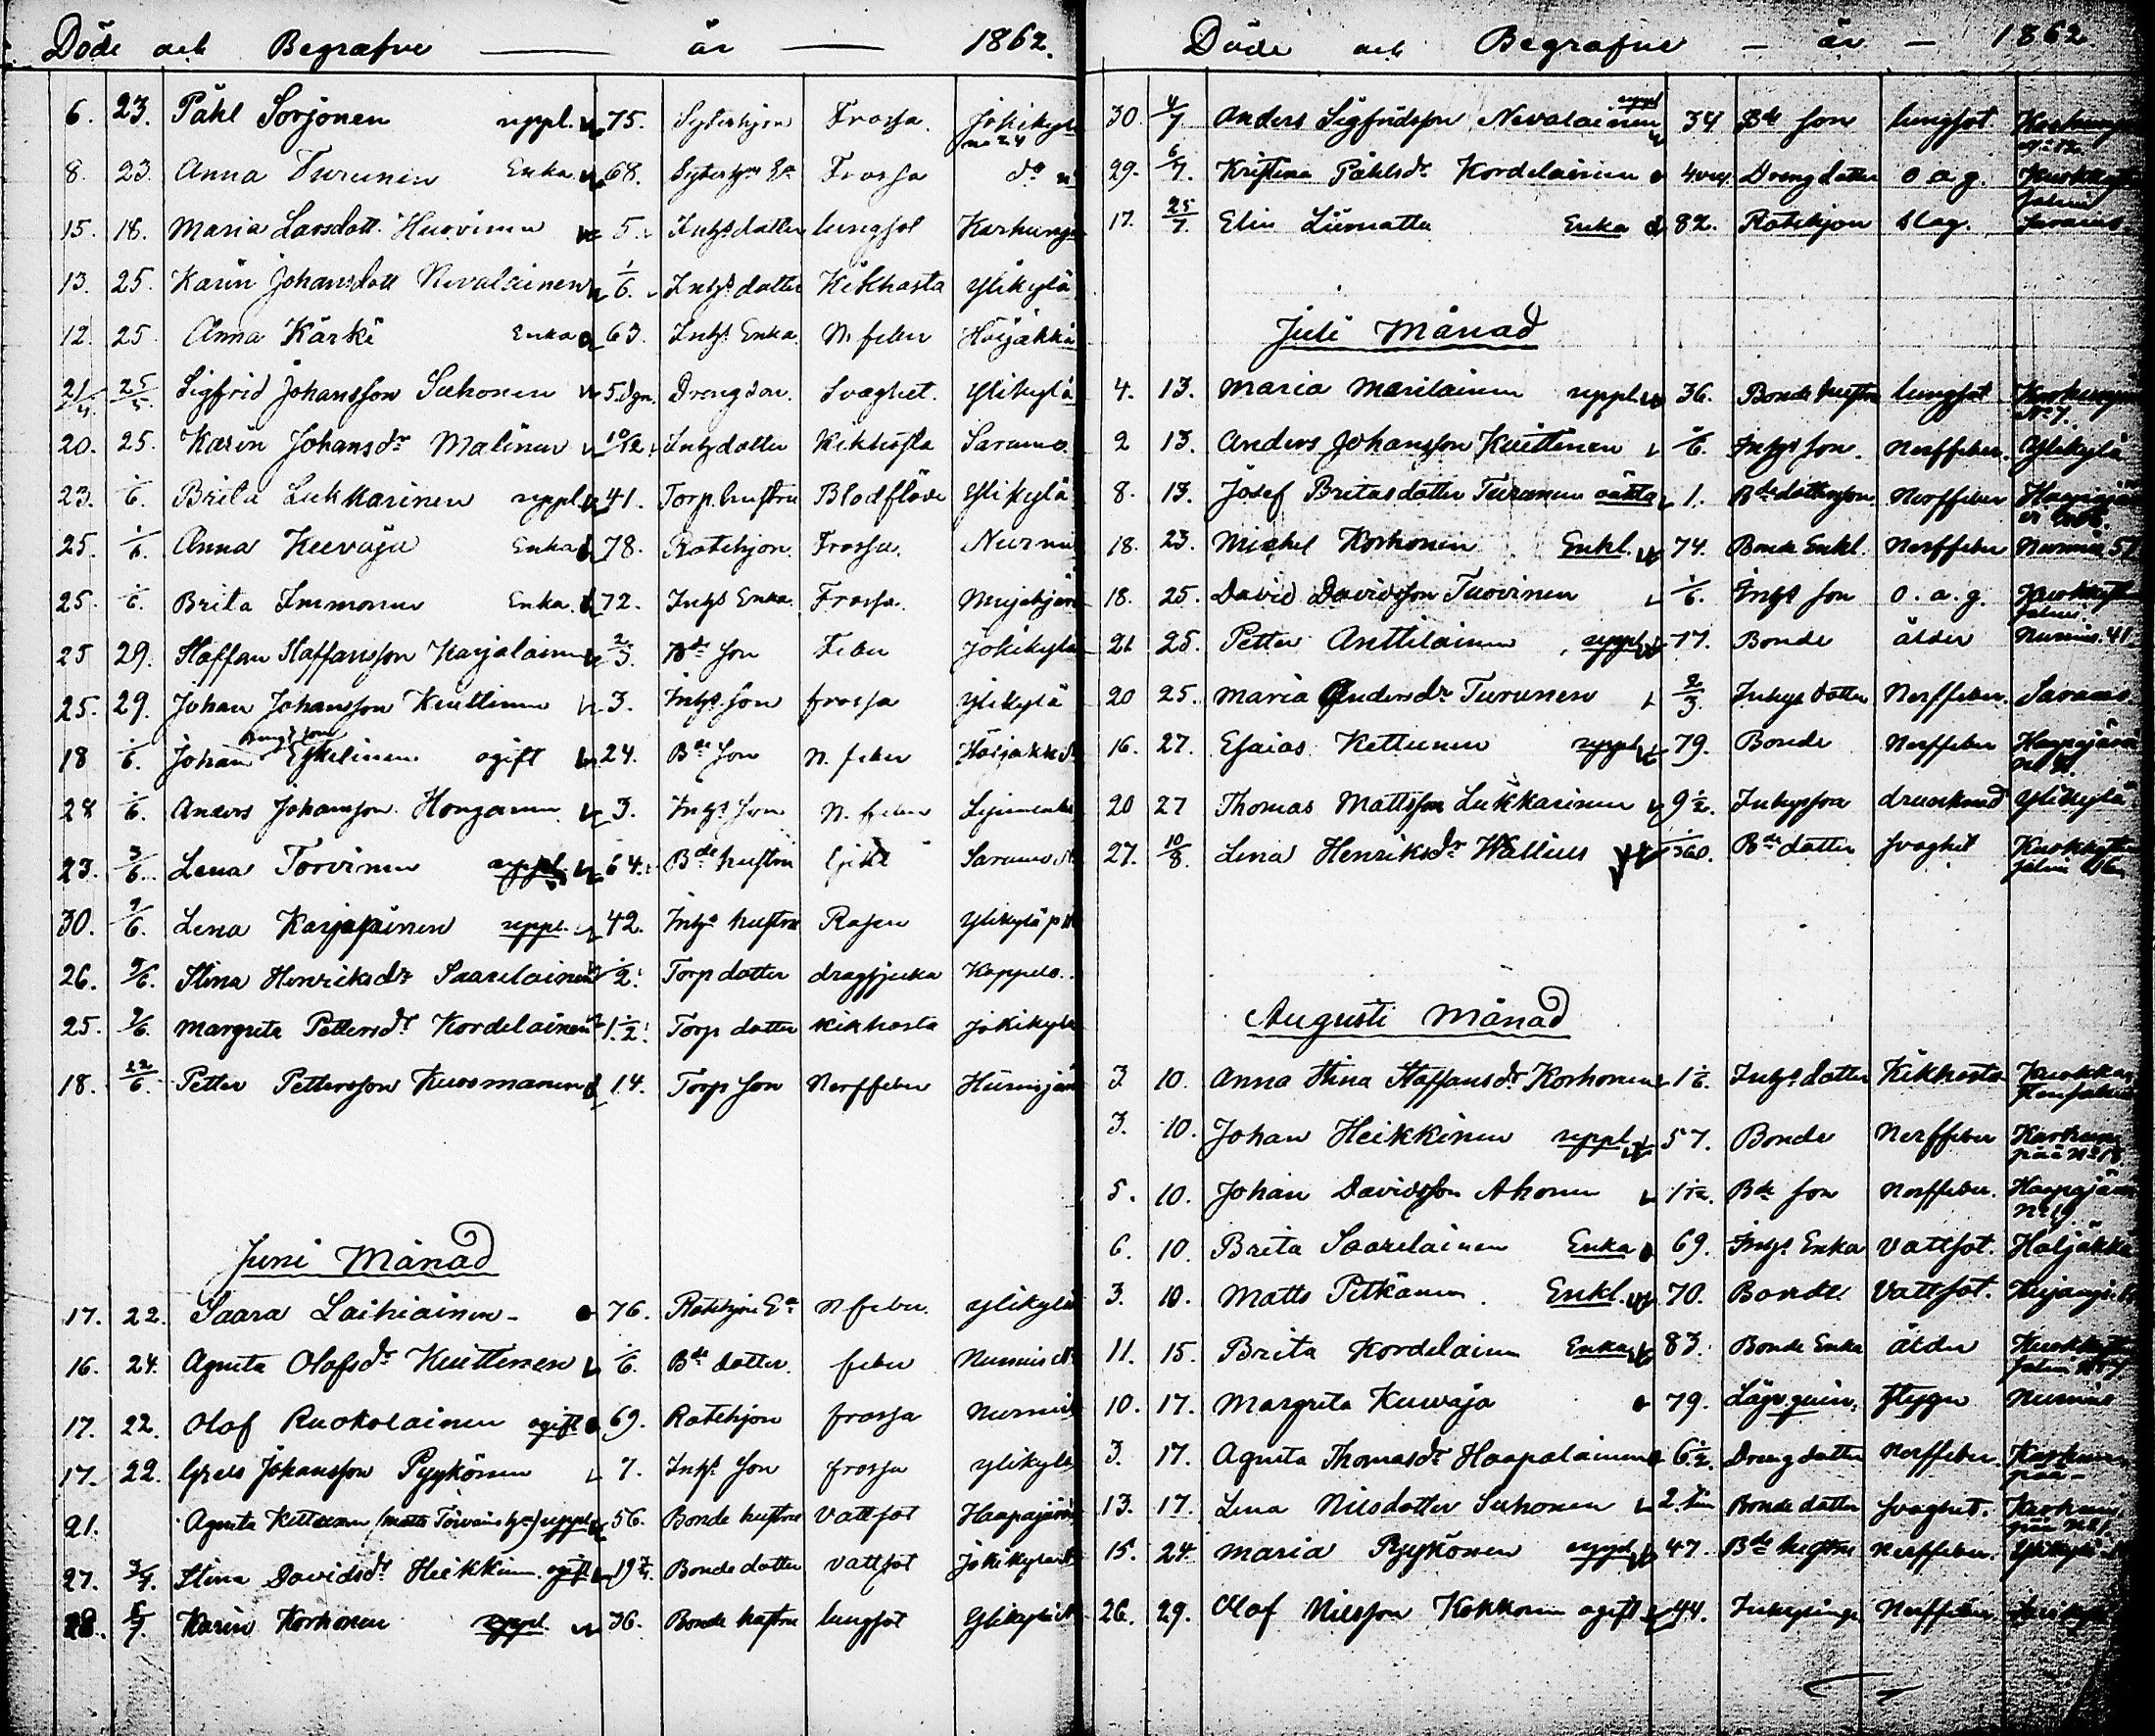 Döde och Begrafne — år — 1862.
6. 23. Påhl Sorjonen uppl. 75. Sytninghjon Frossa. Jokikylä no 24
8. 23. Anna Turunen Enka 68. Frossa do
15. 18. Maria Larsdott. Huovinen 5. Inhs dotter lungsot Karhunpää
13. 25. Karin Johansdott Nevalainen 1/6. Inhs dotter Kikhosta Ylikylä
12. 25. Anna Kärki Enka 63. Inhs Enka. N. feber Höljäkkä
21/4. 25/5. Sigfrid Johansson Suhonen 5. dgr. Dreng Son. Svaghet. Ylikylä
20. 25. Karin Johansdr Malinen 10/12. Inhs dotter Kikhosta Saramo.
23. 1/6. Brita Lukkarinen uppl. 41. Torp. hustru Blodflöde Ylikylä
25. 1/6. Anna Keevaja Enka 78. Rotehjon. Frossa. Nurmes
25. 1/6. Brita Immonen Enka. 72. Inhs Enka. Frossa. Mujejärvi
25 29. Staffan Staffansson Karjalainen 2/3. Bde Son Feber Jokikylä
25. 29. Johan Johansson Kuittinen 3. Inhs. Son frossa Ylikylä
18 1/6. Johan Eskelinen ogift 24. Bde Son N. feber Höljäkkä
28 1/6. Anders Johansson Honganen 3. Inhs Son N. feber
23. 3/6. Lena Torvinen uppl. 64. Bde hustru Gikt Saramo
30. 9/6. Lena Karjalainen uppl. 42. Inhs hustru Rosen Ylikylä
26. 9/6. Stina Henriksdr Saarelainen 1/2. Torp dotter dragsjuka Koppelo.
25. 9/6. Margreta Pettersdr Kordelainen 1 1/2. Torp dotter Kikhosta Jokikylä
18. 22/6. Petter Pettersson Kuosmanen 14. Torp Son Nerffeber
Juni Månad
17. 22. Saara Laihiainen - 76. Rotehjon N feber. Ylikylä
16. 24. Agneta Olofsdr Kuittinen 1/6. Bde dotter. feber Nurmes
17. 22. Olof Ruokolainen ogift 69. Rotehjon frossa Nurmes
17. 22. Grels Johansson Pyykönen 7. Inhs Son frossa Ylikylä
21. Agneta Kettunen uppl. 56. Bonde hustru Vattsot Haapajärvi
27. 3/7. Stina Davidsdr Heikkinen. ogift 19 Bonde dotter Vattsot Jokikylä
28. 6/7. Karin Korhonen uppl. 36. Bonde hustru lungsot Ylikylä
Döde och Begrafne — år — 1862.
30. 4/7 Anders Sigfridsson Nevalainen uppl 34 Bde Son lungsot. Karhunpää
29. 6/7. Kristina Påhlsdr Kordelainen 4 vec. Dreng dotter o. a. g. Kuokkasten
17. 25/7 Elin Liimatta Enka 82. Rotehjon Slag. Saramo
Juli Månad
4. 13. Maria Marilainen uppl. 36. Bonde hustru lungsot Karhunpää No 7.
2 13. Anders Johansson Kuittinen 1/6. Inhs Son. Nerffeber. Ylikylä
8. 13. Josef Britasdotter Turunen oäkta 1. Bdedotterson. Nerffeber Haapajärvi
18. 23. Michel Korhonen Enkl. 74. Bonde Enkl. Nerffeber Nurmes 57
18. 25. David Davidsson Tuovinen 1/6. Inhs Son o. a. g. Kuokkasten
21 25. Petter Anttilainen uppl 77. Bonde ålder Nurmes 41.
20 25. Maria Andersdr Turunen 2/3. Inhys dotter Nerffeber. Saramo.
16. 27. Esaias Kettunen uppl 79. Bonde Nerffeber Haapajärvi
20 27 Thomas Mattsson Lukkarinen 9 1/2. Inhysson drunknad Ylikylä
27. 10/8. Lena Henriksdr Wallius 1/360. Bde dotter svaghet Kuokkasten
Augusti Månad
3 10. Anna Stina Staffansdr Korhonen 1 1/6. Inhs dotter Kikhosta Kuokkastenjalmi
3. 10. Johan Heikkinen uppl. 57. Bonde Nerffeber Karhunpää
5. 10. Johan Davidsson Ahonen 1 1/12. Bde Son Nerffeber. Haapajärvi No 19.
6. 10. Brita Saarelainen Enka 69. Inhs Enka Vattsot. Höljäkkä
3. 10. Matts Pitkänen Enkl. 70. Bonde Vattsot.
11. 15. Brita Kordelainen Enka 83. Bonde Enka ålder Kuokkasten
10. 17. Margreta Kuvaja 79. Nurmes
3. 17. Agneta Thomasdr Haapalainen 6 1/2. Dreng dotter Nerffeber. Karhunpää -
13. 17. Lena Nilsdotter Suhonen 2. tim Bonde dotter svaghet. Karhunpää
15. 24 Maria Pyykönen uppl. 47. Bde hustru Nerffeber. Ylikylä
26. 29. Olof Nilsson Kokkonen ogift 44. Nerffeber.